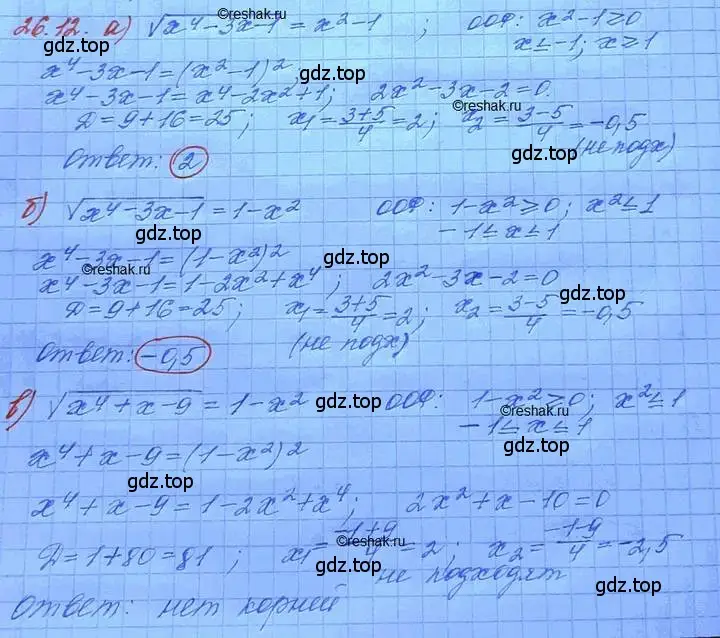 26.12. а) √x⁴-3x-1 = x²-1 ; ООФ: x²-1≥0
x≤-1; x≥1
x⁴-3x-1=(x²-1)²
x⁴-3x-1=x⁴-2x²+1; 2x²-3x-2=0.
Д=9+16=25; x₁=(3+5)/4=2; x₂=(3-5)/4=-0,5
(не подх)
Ответ: 2
б) √x⁴-3x-1 = 1-x² ООФ: 1-x²≥0; x²≤1
-1≤x≤1
x⁴-3x-1=(1-x²)²
x⁴-3x-1=1-2x²+x⁴; 2x²-3x-2=0
Д=9+16=25; x₁=(3+5)/4=2; x₂=(3-5)/4=-0,5
(не подх)
Ответ: -0,5
в) √x⁴+x-9 = 1-x² ООФ: 1-x²≥0; x²≤1
-1≤x≤1
x⁴+x-9=(1-x²)²
x⁴+x-9=1-2x²+x⁴; 2x²+x-10=0
Д=1+80=81 ; x₁=(-1+9)/4=2; x₂=(-1-9)/4=-2,5
не подходят
Ответ: нет корней
©reshak.ru
gdz.top
gdz.top
©reshak.ru
©reshak.ru
gdz.top
gdz.top
gdz.top
©reshak.ru
gdz.top
gdz.top
©reshak.ru
gdz.top
gdz.top
gdz.top
gdz.top